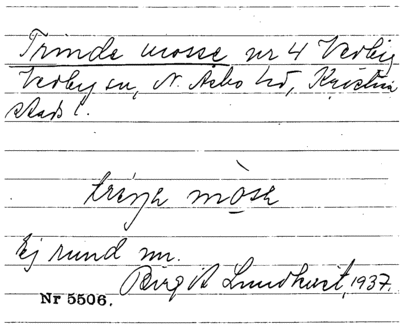 Trinde mosse nr 4 Verby
Verby sn, N. Åsbo hd, Kristian
stads l.
mòsa
Ej rund m.
Birg A Lundkvist, 1937.
Nr 5506.